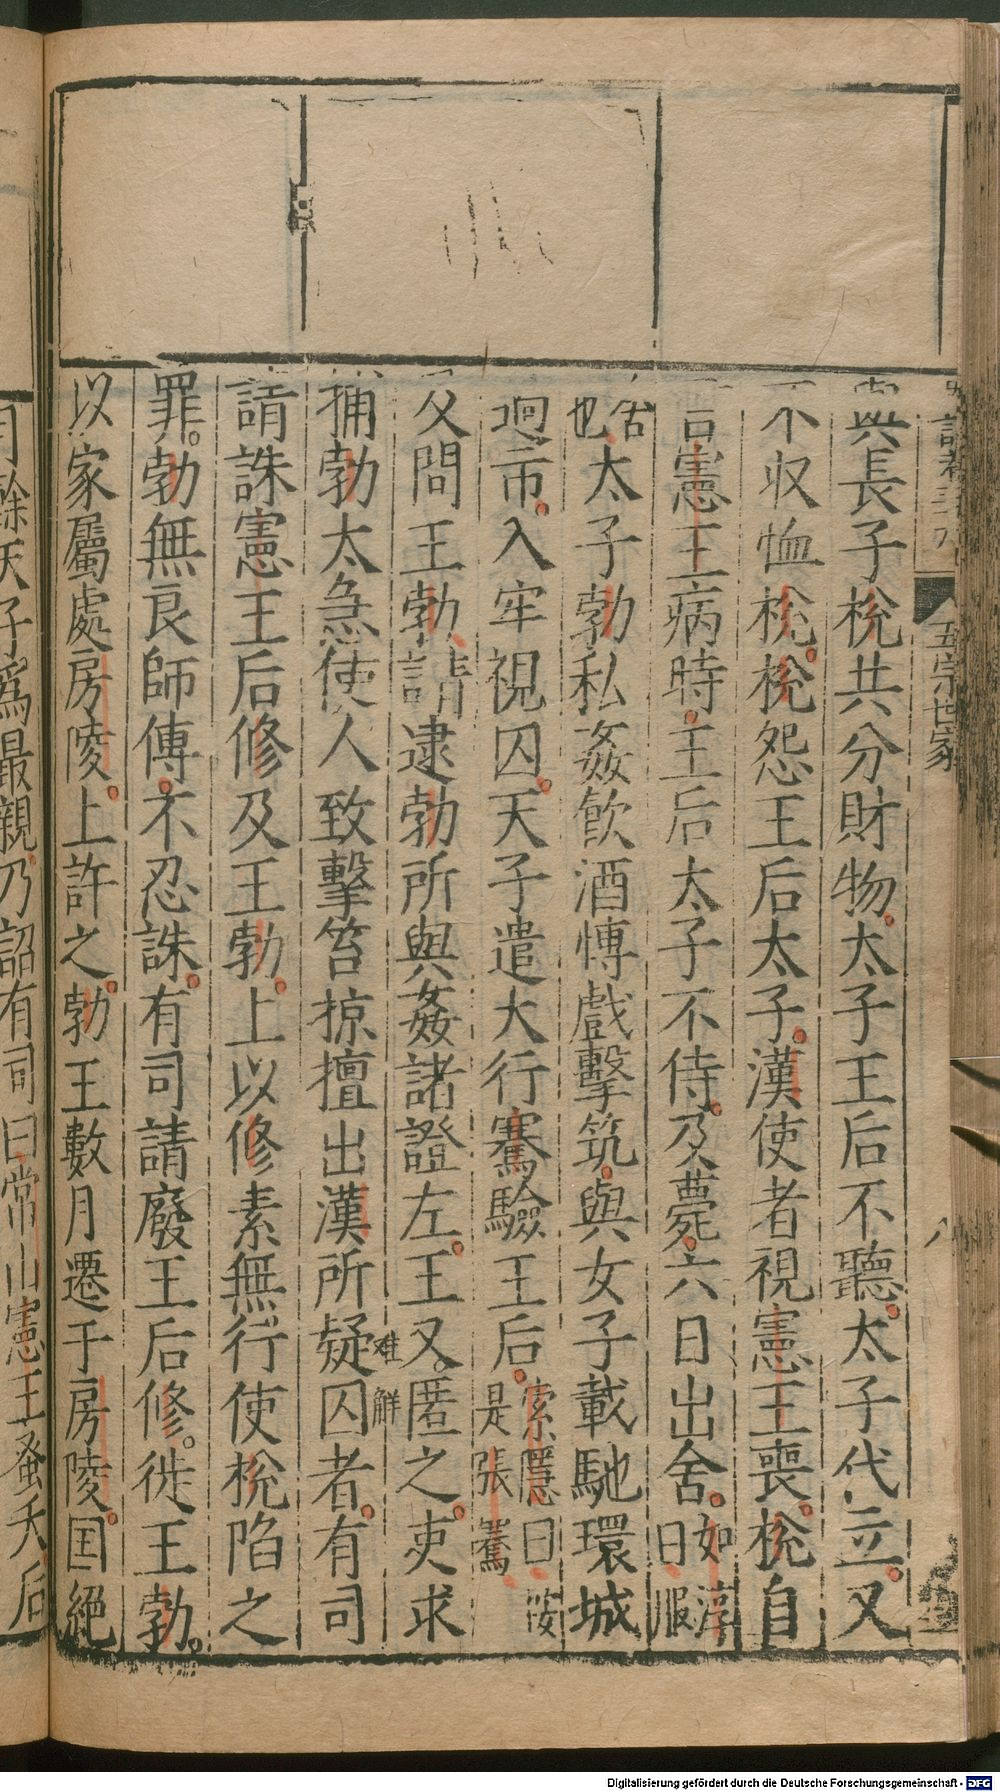 與長子梲共分財物太子王后不聽太子代立又
不収恤梲梲怨王后太子漢使者視憲王喪梲自
言憲王病時王后太子不侍及薨六日出舍如淳曰服
舍也太子勃私姦飲酒博戲擊筑與女子載馳環城
迴市入牢視囚天子遣大行騫驗王后索隱曰按是張騫
及問王勃請逮勃所與姦諸證左王又匿之吏求
捕勃太急使人致擊笞掠擅出漢所疑囚者有司
請誅憲王后修及王勃上以修素無行使梲陷之
罪勃無良師傅不忍誅有司請廢王后修徙王勃
以家屬處房陵上許之勃王數月遷于房陵囯絕
月餘天子爲最親乃詔有司曰常山憲王蚤夭后
五宗世家
八
Digitalisierung gefördert durch die Deutsche Forschungsgemeinschaft - DFG